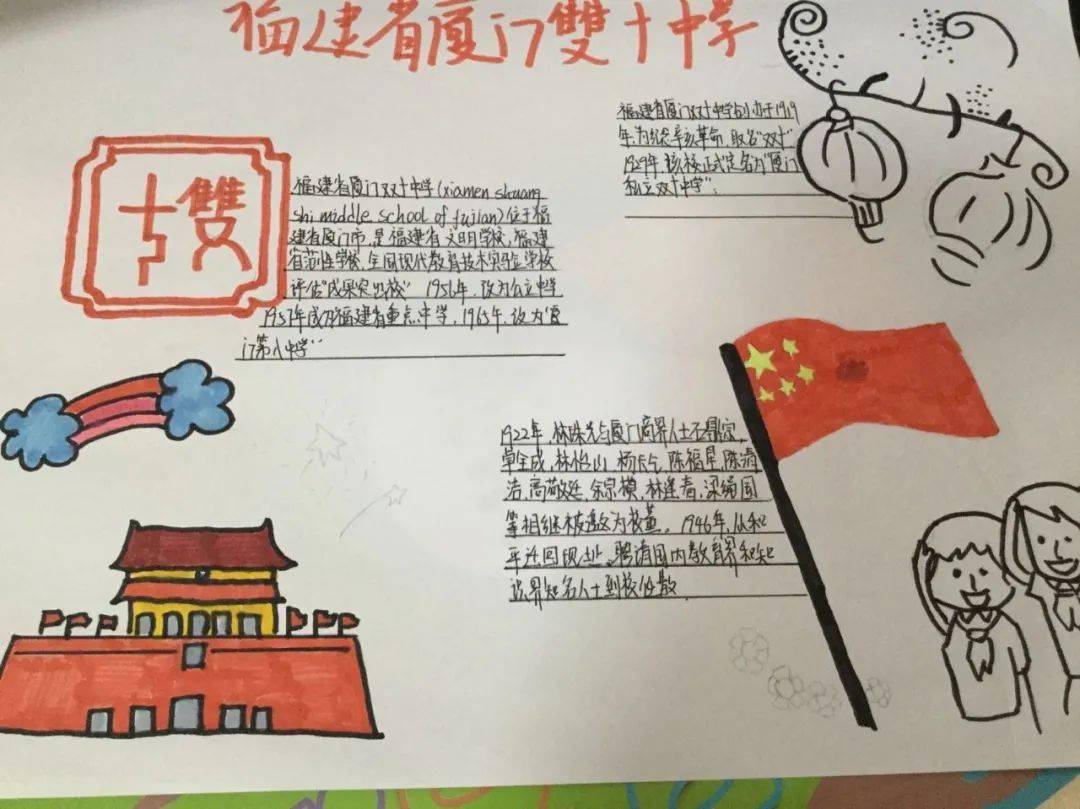 福建省厦门雙十中学
雙十
福建省厦门双十中学创办于1919
年,为纪念辛亥革命,取名"双十"
1929年,该校正式定名为"厦门
私立双十中学".
福建省厦门双十中学(xiamen shuang
shi middle school of fujian)位于福
建省厦门市,是福建省文明学校,福建
省示范性学校,全国现代教育技术实验学校
评估"成果突出校" 1956年,改为公立中学
1957年成为福建省重点中学,1965年,改为"厦
门第八中学"
1922年,林珠光与厦门商界人士石鼎宗,
卓全成,林怡山,杨,陈福星,陈清
洁,高敬廷,余宗模,林逢春,梁绳国
等相继被邀为校董。1946年,从和
平迁回现址,聘请国内教育界和知
识界知名人士到校任教